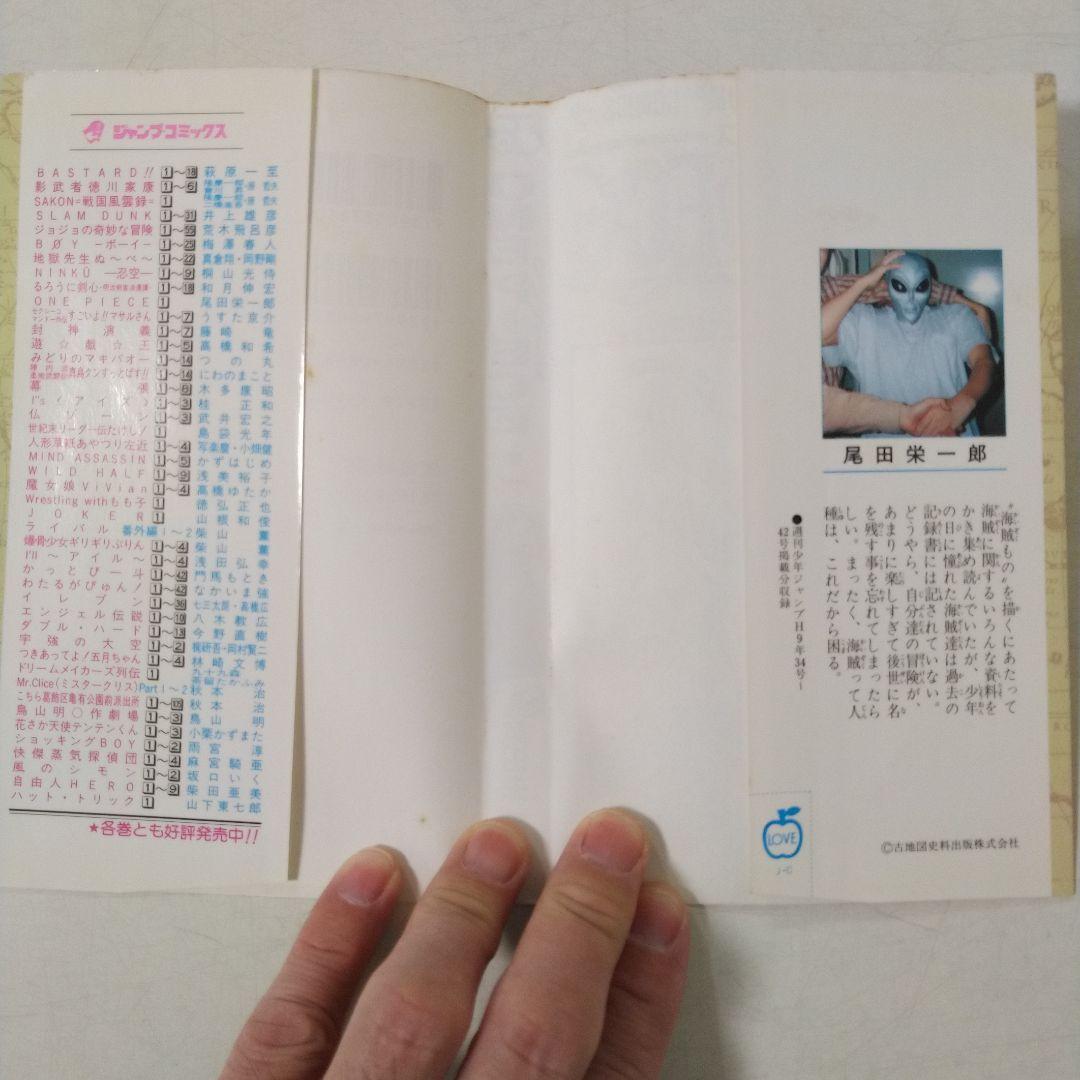 ジャンプ・コミックス
BASTARD!! 1〜18 萩原一至
影武者徳川家康 1〜6 隆慶一郎・原哲夫
SAKON=戦国風雲録= 1 隆慶一郎・原哲夫
SLAM DUNK 1〜31 井上雄彦
ジョジョの奇妙な冒険 1〜55 荒木飛呂彦
BØY ―ボーイ― 1〜25 梅澤春人
地獄先生ぬ〜べ〜 1〜22 真倉翔・岡野剛
NINKŪ ―忍空― 1〜9 桐山光侍
るろうに剣心・明治剣客浪漫譚・ 1〜18 和月伸宏
ONE PIECE 1 尾田栄一郎
セクシーコマンドー外伝 すごいよ!!マサルさん 1〜7 うすた京介
封神演義 1〜7 藤崎竜
遊☆戯☆王 1〜5 高橋和希
みどりのマキバオー 1〜14 つの丸
真島クンすっとばす!! 1〜14 にわのまこと
幕張 1〜8 木多康昭
I"s〈アイズ〉 1〜3 桂正和
仏ゾーン 1〜3 武井宏之
世紀末リーダー伝たけし! 1 島袋光年
人形草紙あやつり左近 1〜4 写楽麿・小畑健
MIND ASSASSIN 1〜5 かずはじめ
WILD HALF 1〜9 浅美裕子
魔女娘ViVian 1〜4 高橋ゆたか
Wrestling withもも子 1 徳弘正也
JOKER 1 山根和俊
ライバル 番外編1〜2 柴山薫
爆骨少女ギリギリぷりん 1〜4 柴山薫
I'll 〜アイル〜 1〜4 浅田弘幸
かっとび一斗 1〜42 門馬もとき
わたるがぴゅん! 1〜42 なかいま強
イレブン 1〜36 七三太朗・高橋広
エンジェル伝説 1〜10 八木教広
ダブル・ハード 1〜13 今野直樹
宇強の大空 1〜2 梶研吾・岡村賢二
つきあってよ!五月ちゃん 1〜4 林崎文博
ドリームメイカーズ列伝 1
Mr.Clice(ミスタークリス) Part 1〜2 秋本治
こちら葛飾区亀有公園前派出所 秋本治
鳥山明〇作劇場 1〜3 鳥山明
花さか天使テンテンくん 1〜3 小栗かずまた
ショッキングBOY 1〜2 雨宮淳
快傑蒸気探偵団 1〜4 麻宮騎亜
風のシモン 1〜2 坂口いく
自由人HERO 1〜9 柴田亜美
ハット・トリック 1 山下東七郎
★各巻とも好評発売中!!
尾田栄一郎
"海賊もの"を描くにあたって
海賊に関するいろんな資料を
かき集め読んでいたが、少年
の日に憧れた海賊達は過去の
記録書には記されていない。
どうやら、自分達の冒険が、
あまりに楽しすぎて後世に名
を残す事を忘れてしまったら
しい。まったく、海賊って人
種は、これだから困る。
●週刊少年ジャンプH9年34号〜
42号掲載分収録
LOVE
©古地図史料出版株式会社